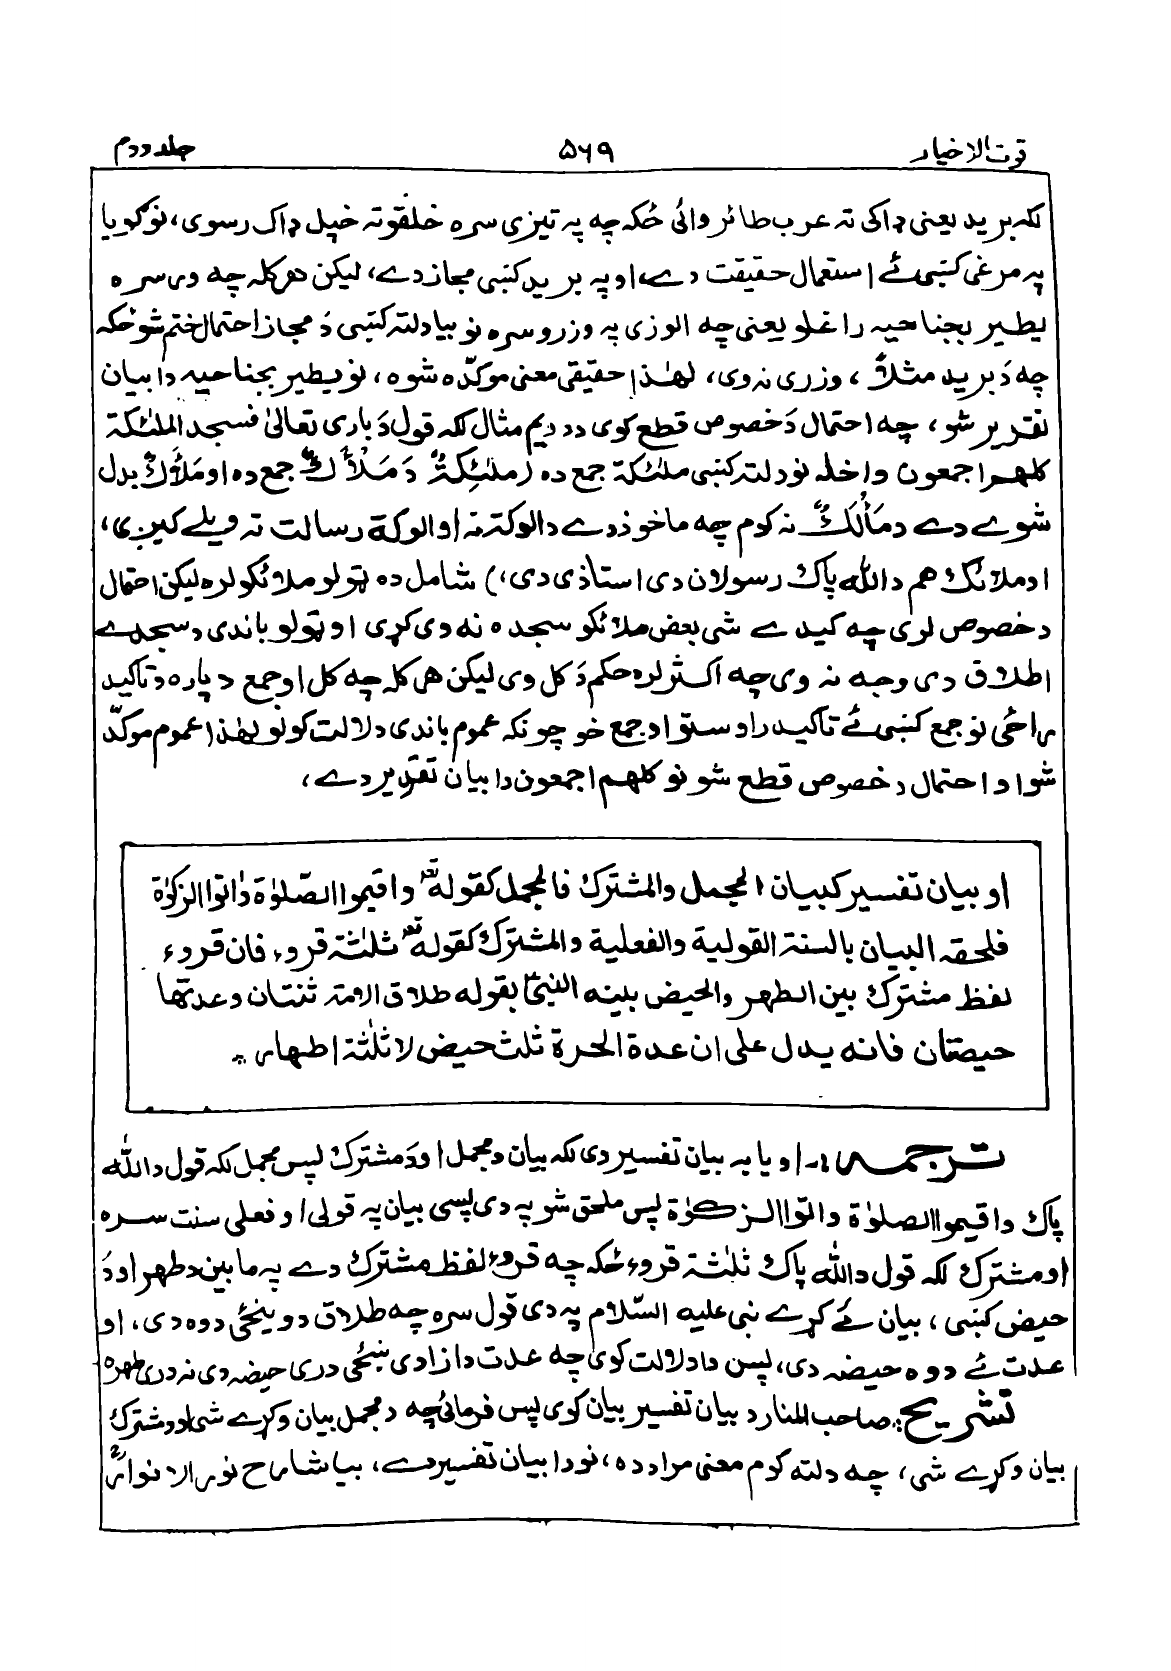 قوت الاخیار ۵۶۹ جلد دوم
لکه برید یعنی ډاکی ته عرب طائر وائی ځکه چه په تیزی سره خلقو ته خپل ډاک رسوی، نو گویا
په مرغی کښی ئے استعمال حقیقت دے، او په برید کښی مجاز دے، لیکن هر کله چه وی سره
یطیر بجناحیه راغلو یعنی چه الوزی په وزرو سره نو بیا دلته کښی دَ مجاز احتمال ختم شو ځکه
چه دَ برید مثلاً، وزری نه وی، لهٰذا حقیقی معنی موکده شوه، نو یطیر بجناحیه دا بیان
تقدیر شو، چه احتمال دَ خصوص قطع کوی د دیم مثال لکه قول دَ باری تعالیٰ فسجد الملٰئکة
کلهم اجمعون واخله نو دلته کښی ملٰئکة جمع ده (ملٰئِکةٌ دَ مَلْأَكٌ جمع ده او ملأكٌ بدل
شوے دے د مَأْلَكٌ نه کوم چه ماخوذ دے د الوکة نه او الوکة رسالت ته ویلے کیږی،
او ملائک هم د الله پاک رسولان دی استاذی دی،) شامل ده ټولو ملائکو لره لیکن احتمال
د خصوص لری چه کیدے شی بعض ملائکو سجده نه وی کړی او ټولو باندی د سجدے
اطلاق دی وجه نه وی چه اکثر لره حکم دَ کل وی لیکن هر کله چه کل او جمع د پاره د تاکید
راځی نو جمع کښی ئے تاکید راوستو او جمع خو چونکه عموم باندی دلالت کولو لهٰذا عموم موکدّ
شو او احتمال د خصوص قطع شو نو کلهم اجمعون دا بیان تقدیر دے،
او بیان تفسیر کبیان المجمل والمشترک فالمجمل کقوله تع واقیموا الصّلوٰة واٰتوا الزکوٰة
فلحقه البیان بالسنة القولیة والفعلیة والمشترک کقوله تع ثلٰثة قروء فان قروء
لفظ مشترک بین الطهر والحیض بینه النبیؐ بقوله طلاق الامة ثنتان وعدتها
حیضتان فانه یدل علی ان عدة الحرة ثلث حیض لا ثلٰثة اطهار۔
ترجمه:- او یا په بیان تفسیر دی لکه بیان د مجمل او دَ مشترک پس مجمل لکه قول د الله
پاک واقیموا الصلوٰة واتوا الزکوٰة پس ملحق شو په دی پسی بیان په قولی او فعلی سنت سره
او مشترک لکه قول د الله پاک ثلٰثة قروء ځکه چه قروء لفظ مشترک دے په مابین د طهر او دَ
حیض کښی، بیان ئے کړے نبی علیه السّلام په دی قول سره چه طلاق د وینځی دوه دی، او
عدت ئے دوه حیضه دی، پس دا دلالت کوی چه عدت د ازادی ښځی دری حیضه دی نه دری طهره
تشریح: صاحب المنار د بیان تفسیر بیان کوی پس فرمائی چه د مجمل بیان وکړے شی او د مشترک
بیان وکړے شی، چه دلته کوم معنی مراد ده، نو دا بیان تفسیر دے، بیا شارح نور الانوارؒ